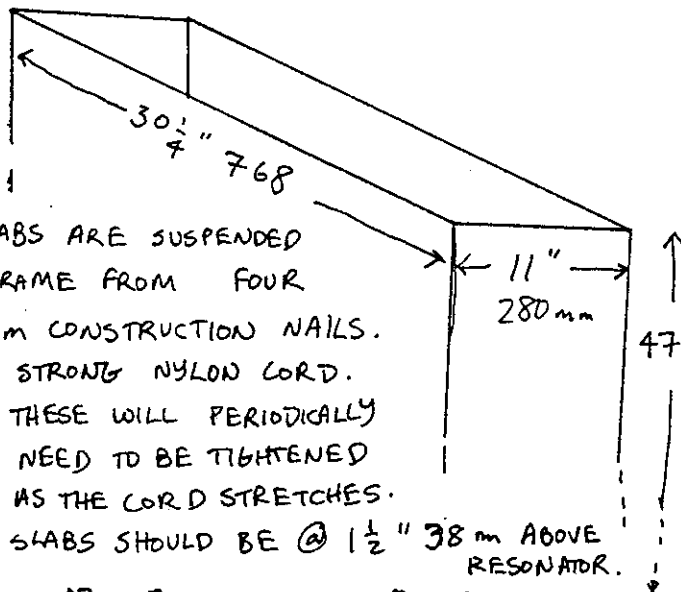 30 1/4" 768
11"
280mm
47
ABS ARE SUSPENDED
RAME FROM FOUR
m CONSTRUCTION NAILS.
STRONG NYLON CORD.
THESE WILL PERIODICALLY
NEED TO BE TIGHTENED
AS THE CORD STRETCHES.
SLABS SHOULD BE @ 1 1/2" 38 m ABOVE
RESONATOR.